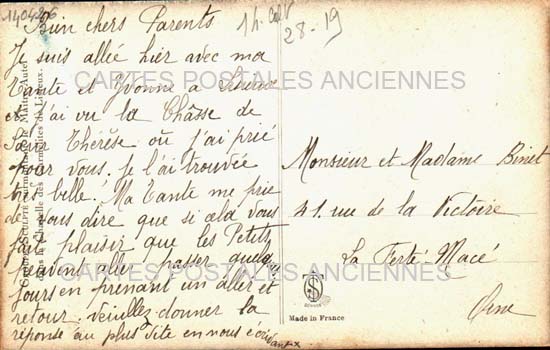 140486
14. Calv
28-19
Bien chers Parents
Je suis allée hier avec ma
Tante et Yvonne à Lisieux
et j'ai vu la Châsse de
Sœur Thérèse où j'ai prié
pour vous. Je l'ai trouvée
très belle. Ma Tante me prie
de vous dire que si cela vous
fait plaisir que les Petits
peuvent aller passer quelques
jours en prenant un aller et
retour. Veuillez donner la
réponse au plus vite en nous écrivant x
Monsieur et Madame Binet
41. rue de la Victoire
La Ferté-Macé
Orne
CARTES POSTALES ANCIENNES
CARTES POSTALES ANCIENNES
dans la Chapelle des Carmélites de Lisieux.
Made in France